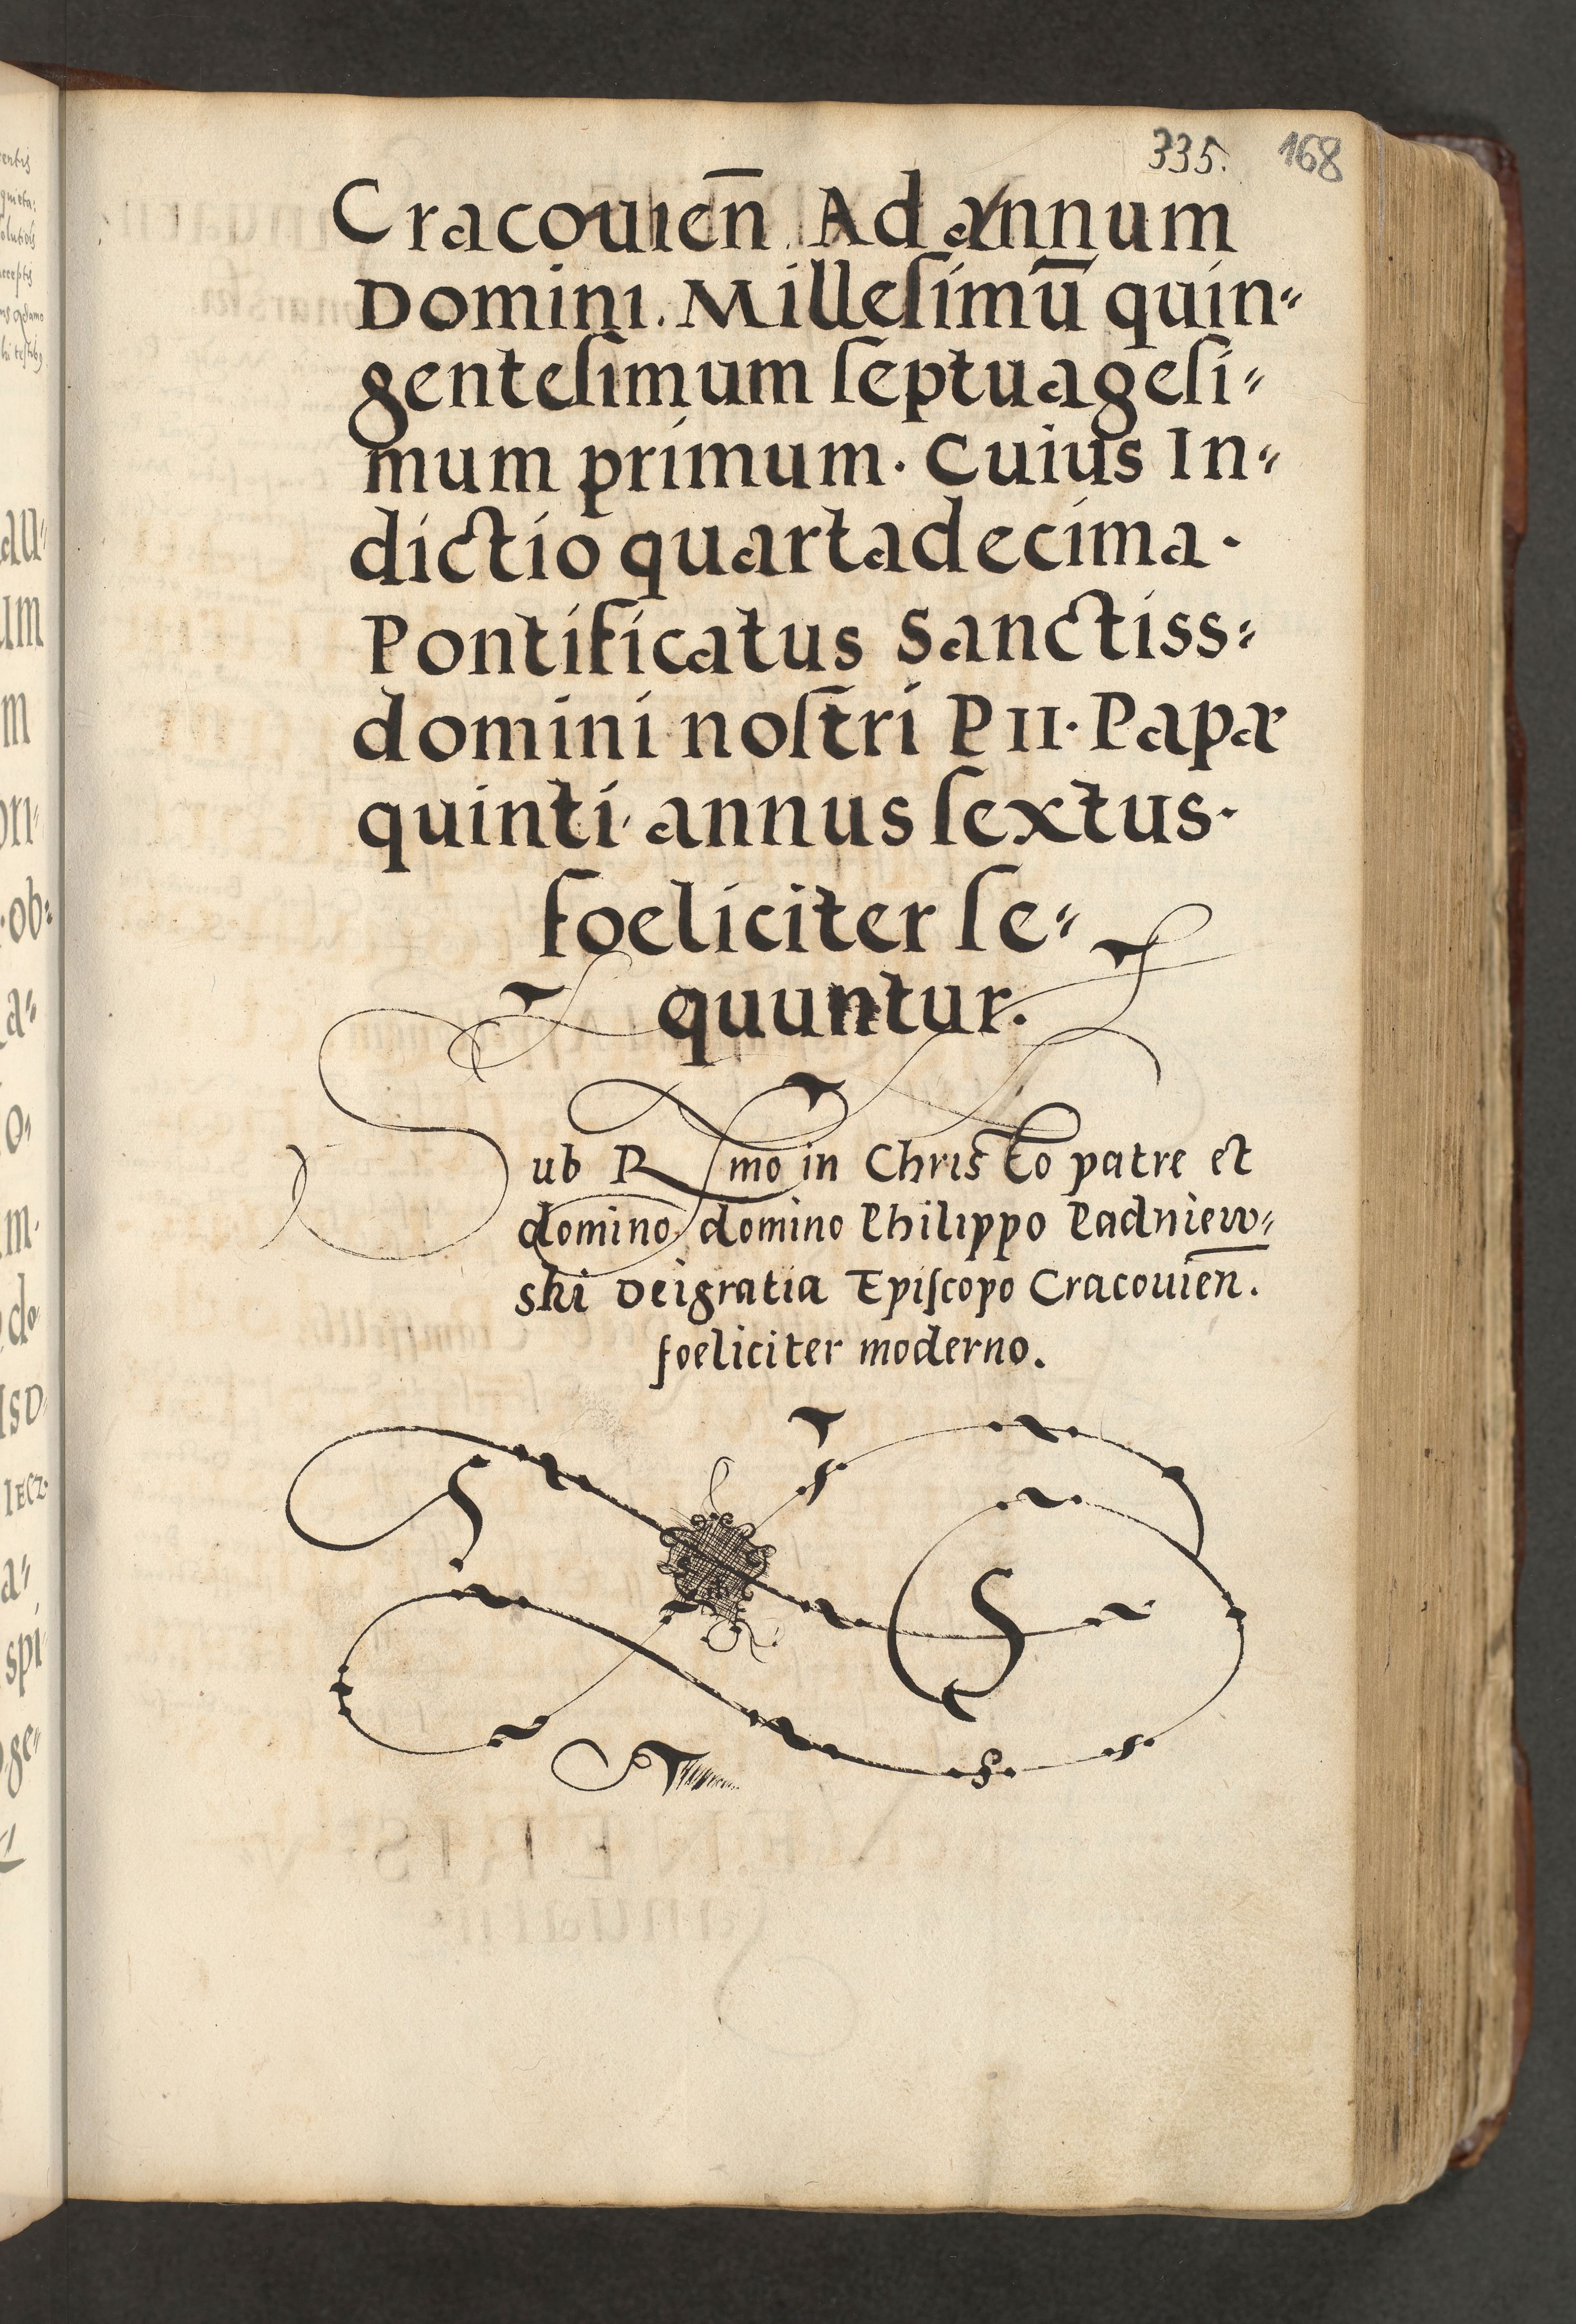 335. 168
Cracouien̅. Ad annum
Domini. Milleſimū quin⸗
genteſimum ſeptuageſi⸗
mum primum. Cuius In⸗
dictio quartadecima.
Pontificatus Sanctiss⸗
domini noſtri P II. Papæ
quinti. annus ſextus.
foeliciter ſe⸗
quuntur.
Sub Rmo in Christo patre et
domino domino Philippo Padniew⸗
ski Dei gratia Epiſcopo Cracouien̅.
foeliciter moderno.